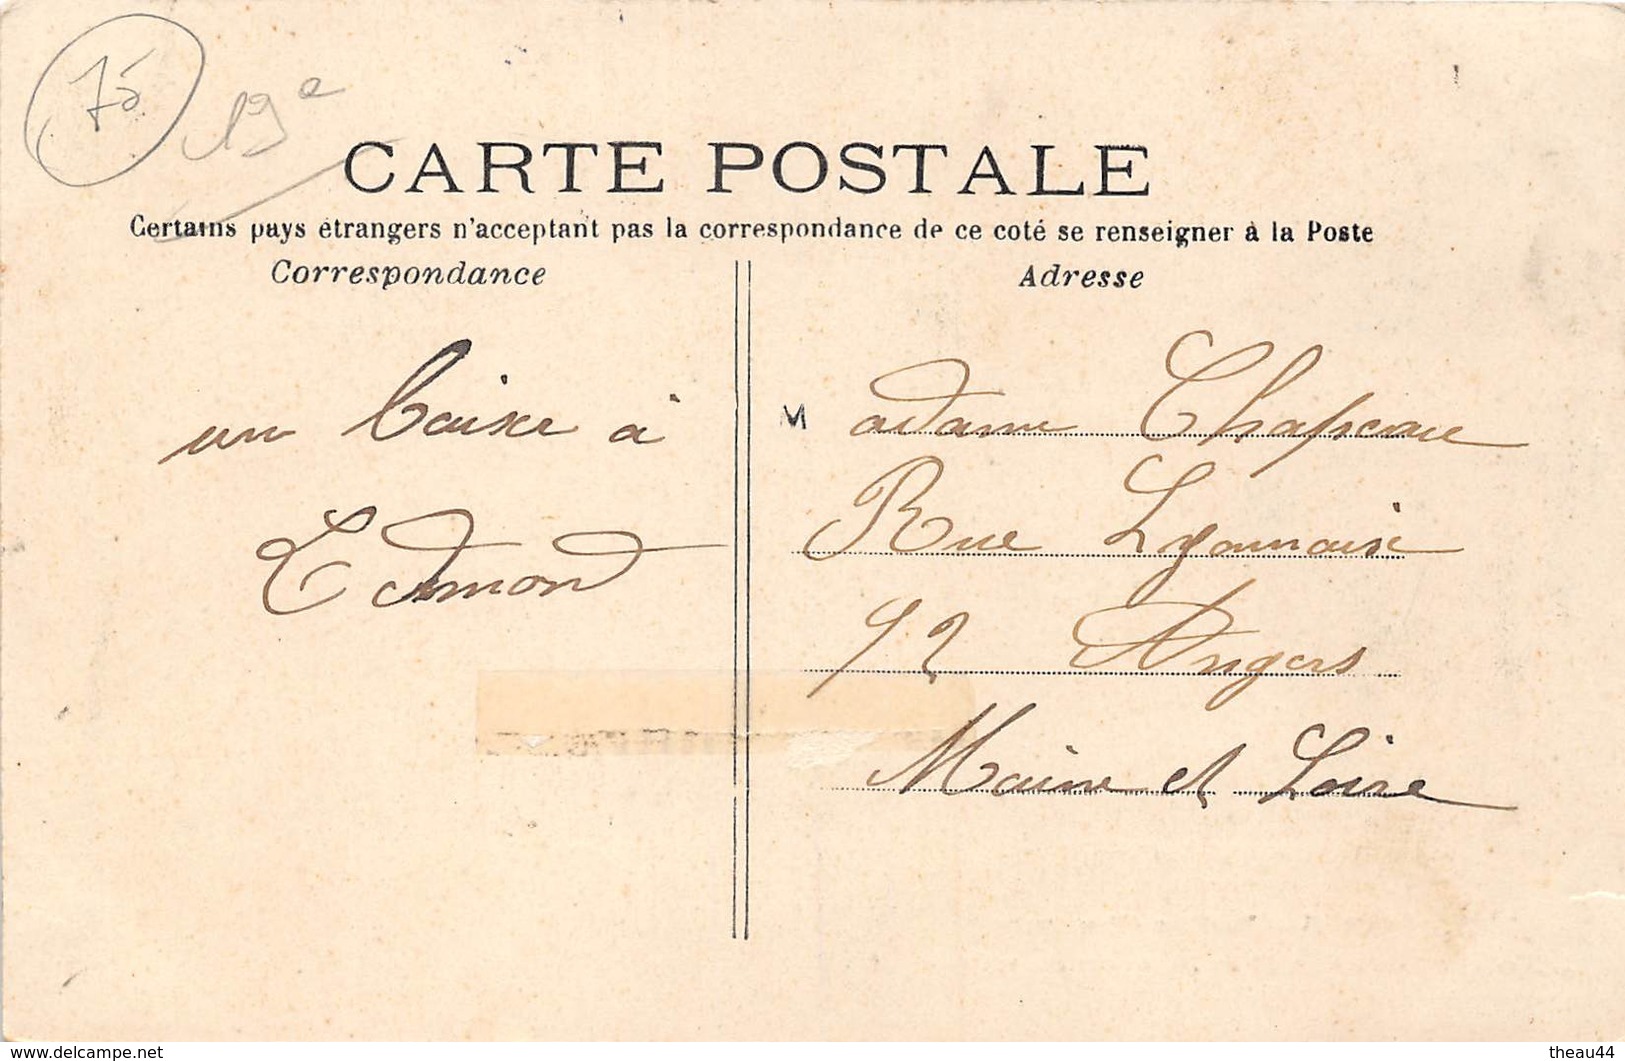 75
19e
CARTE POSTALE
Certains pays étrangers n'acceptant pas la correspondance de ce coté se renseigner à la Poste
Correspondance
Adresse
un baise à
Edmond
Madame Chapeau
Rue Lyonnaise
92 Angers
Maine et Loire
www.delcampe.net
theau44